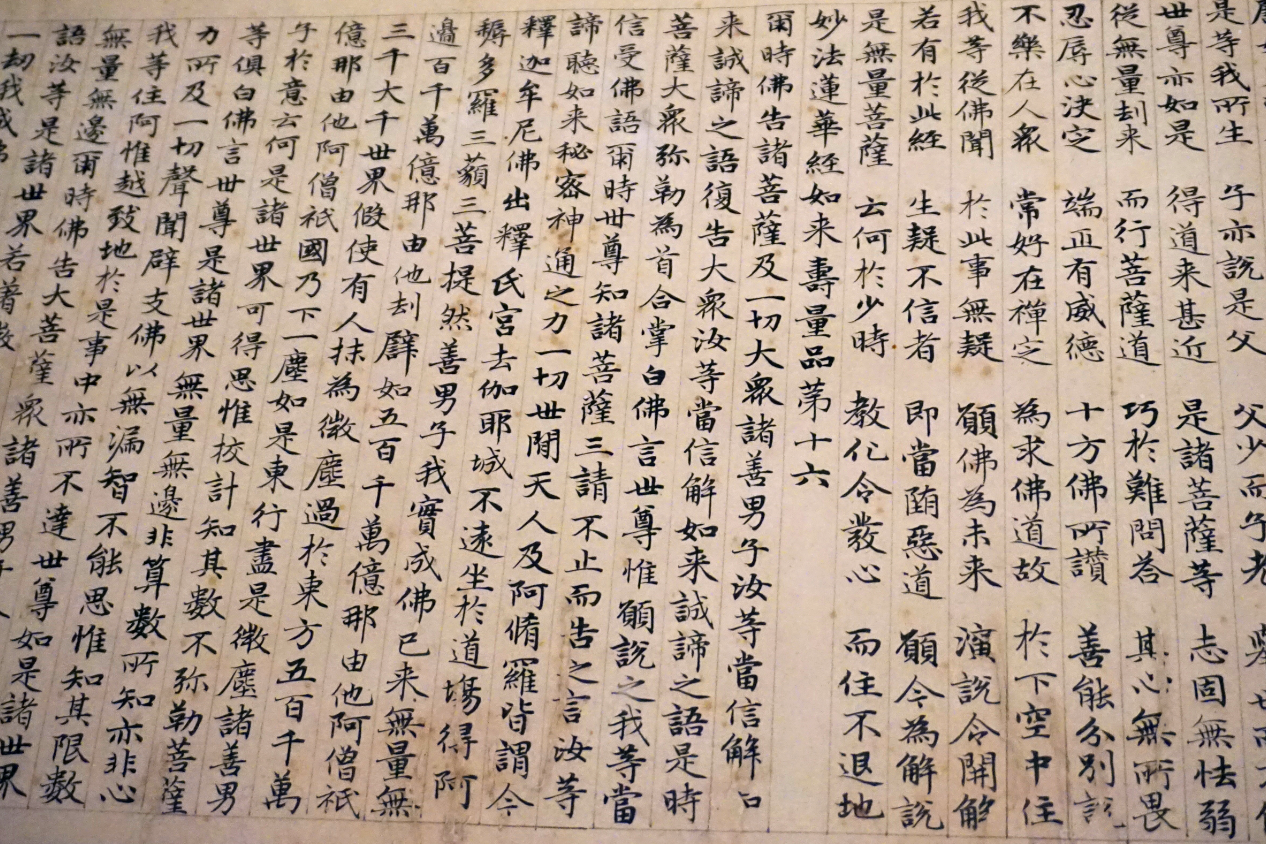 是等我所生　子亦說是父　父少而子老
世尊亦如是　得道来甚近　是諸菩薩等　志固無怯弱
從無量劫来　而行菩薩道　巧於難問答　其心無所畏
忍辱心決定　端正有威德　十方佛所讚　善能分別說
不樂在人衆　常好在禪定　為求佛道故　於下空中住
我等從佛聞　於此事無疑　願佛為未来　演說令開解
若有於此經　生疑不信者　即當墮惡道　願今為解說
是無量菩薩　云何於少時　教化令發心　而住不退地
妙法蓮華經如来壽量品第十六
爾時佛告諸菩薩及一切大衆諸善男子汝等當信解如
来誠諦之語復告大衆汝等當信解如来誠諦之語是時
菩薩大衆弥勒為首合掌白佛言世尊惟願說之我等當
信受佛語爾時世尊知諸菩薩三請不止而告之言汝等
諦聽如来秘密神通之力一切世間天人及阿脩羅皆謂今
釋迦牟尼佛出釋氏宮去伽耶城不遠坐於道場得阿
耨多羅三藐三菩提然善男子我實成佛已来無量無
邊百千萬億那由他劫譬如五百千萬億那由他阿僧祇
三千大千世界假使有人抹為微塵過於東方五百千萬
億那由他阿僧祇國乃下一塵如是東行盡是微塵諸善男
子於意云何是諸世界可得思惟校計知其數不弥勒菩薩
等俱白佛言世尊是諸世界無量無邊非算數所知亦非心
力所及一切聲聞辟支佛以無漏智不能思惟知其限數
我等住阿惟越致地於是事中亦所不達世尊如是諸世界
無量無邊爾時佛告大菩薩衆諸善男子
語汝等是諸世界若著微
一劫我成佛